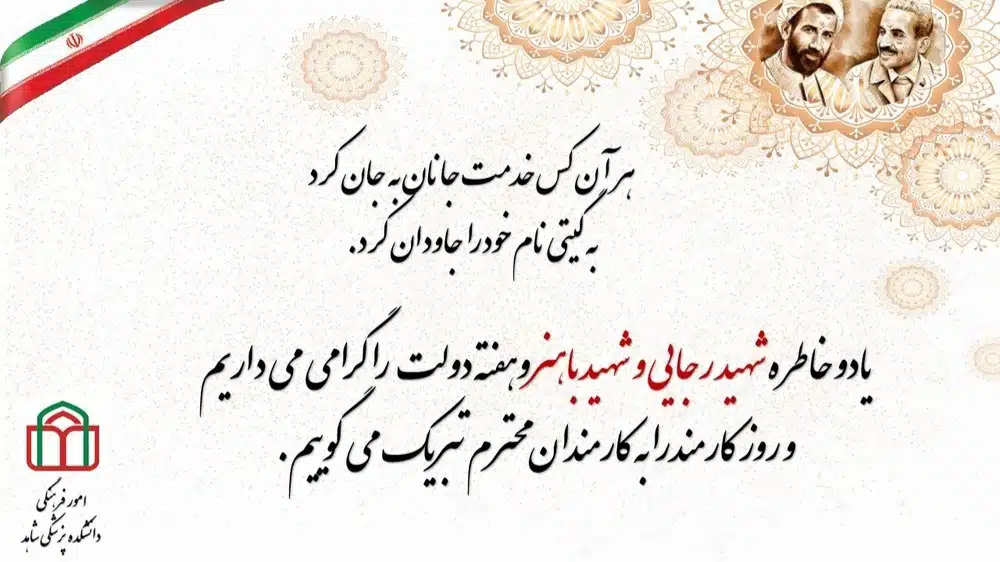 هر آن کس خدمت جانان به جان کرد
به گیتی نام خود را جاودان کرد.
یاد و خاطره شهید رجایی و شهید باهنر و هفته دولت را گرامی می داریم
و روز کارمند را به کارمندان محترم تبریک می گوییم.
امور فرهنگی
دانشکده پزشکی شاهد